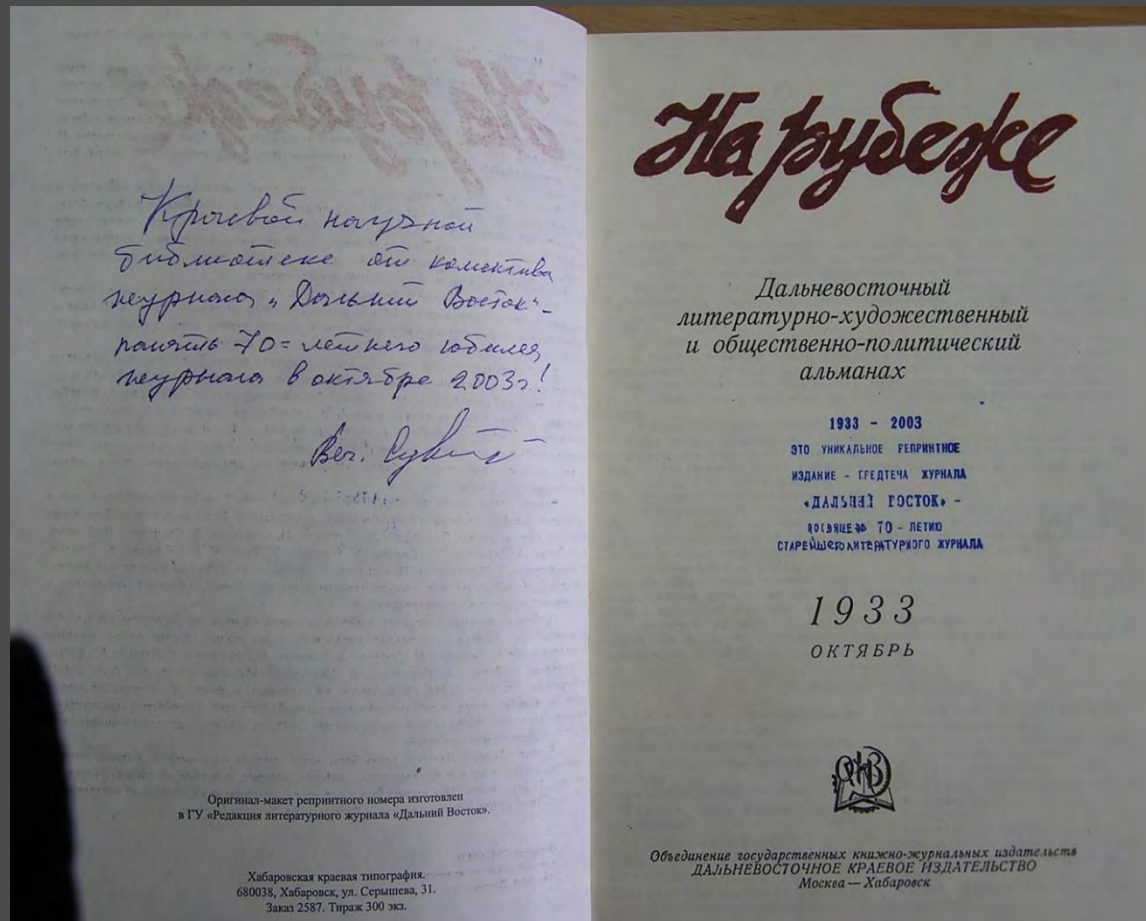 Краевой научной
библиотеке от коллектива
журнала „Дальний Восток“ -
память 70=летнего юбилея
журнала в октябре 2003г!
Вяч.
Оригинал-макет репринтного номера изготовлен
в ГУ «Редакция литературного журнала «Дальний Восток».
Хабаровская краевая типография.
680038, Хабаровск, ул. Серышева, 31.
Заказ 2587. Тираж 300 экз.
На рубеже
Дальневосточный
литературно-художественный
и общественно-политический
альманах
1933 - 2003
ЭТО УНИКАЛЬНОЕ РЕПРИНТНОЕ
ИЗДАНИЕ - ПРЕДТЕЧА ЖУРНАЛА
«ДАЛЬНИЙ ВОСТОК» -
ПОСВЯЩЕНО 70 - ЛЕТИЮ
СТАРЕЙШЕГО ЛИТЕРАТУРНОГО ЖУРНАЛА
1933
ОКТЯБРЬ
Объединение государственных книжно-журнальных издательств
ДАЛЬНЕВОСТОЧНОЕ КРАЕВОЕ ИЗДАТЕЛЬСТВО
Москва — Хабаровск